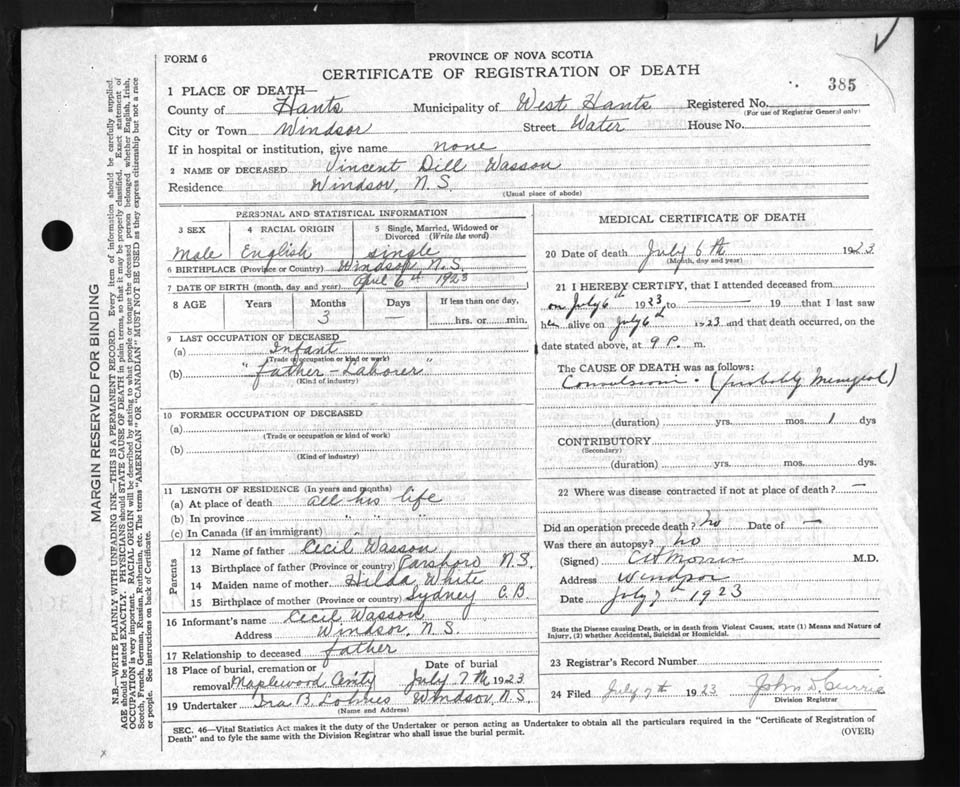 FORM 6
PROVINCE OF NOVA SCOTIA
CERTIFICATE OF REGISTRATION OF DEATH
385
1 PLACE OF DEATH—
County of Hants Municipality of West Hants Registered No.
(For use of Registrar General only)
City or Town Windsor Street Water House No.
If in hospital or institution, give name none
2 NAME OF DECEASED Vincent Dill Wasson
Residence Windsor, N.S.
(Usual place of abode)
PERSONAL AND STATISTICAL INFORMATION
3 SEX 4 RACIAL ORIGIN 5 Single, Married, Widowed or Divorced (Write the word)
Male English single
6 BIRTHPLACE (Province or Country) Windsor N.S.
7 DATE OF BIRTH (month, day and year) April 6th 1923
8 AGE Years Months Days If less than one day,
3 — hrs. or min.
9 LAST OCCUPATION OF DECEASED
(a) Infant
(Trade or occupation or kind of work)
(b) "father - Laborer"
(Kind of industry)
10 FORMER OCCUPATION OF DECEASED
(a)
(Trade or occupation or kind of work)
(b)
(Kind of industry)
11 LENGTH OF RESIDENCE (In years and months)
(a) At place of death all his life
(b) In province " " "
(c) In Canada (if an immigrant)
Parents
12 Name of father Cecil Wasson
13 Birthplace of father (Province or country) Parsboro N.S.
14 Maiden name of mother Hilda White
15 Birthplace of mother (Province or country) Sydney C.B.
16 Informant's name Cecil Wasson
Address Windsor, N.S.
17 Relationship to deceased father
18 Place of burial, cremation or removal Maplewood Cemty Date of burial July 7th 1923
19 Undertaker Ira B. Lohnes Windsor N.S.
(Name and Address)
MEDICAL CERTIFICATE OF DEATH
20 Date of death July 6th 1923
(Month, day and year)
21 I HEREBY CERTIFY, that I attended deceased from
on July 6th 1923, to — 19 that I last saw
him alive on July 6th 1923 and that death occurred, on the
date stated above, at 9 P. m.
The CAUSE OF DEATH was as follows:
Convulsions. (probably Meningeal)
(duration) yrs. mos. 1 dys
CONTRIBUTORY
(Secondary)
(duration) yrs. mos. dys.
22 Where was disease contracted if not at place of death? —
Did an operation precede death? no Date of —
Was there an autopsy? no
(Signed) Morris M.D.
Address Windsor
Date July 7th 1923
State the Disease causing Death, or in death from Violent Causes, state (1) Means and Nature of
Injury, (2) whether Accidental, Suicidal or Homicidal.
23 Registrar's Record Number
24 Filed July 7th 1923 John D. Currie
Division Registrar
SEC. 46—Vital Statistics Act makes it the duty of the Undertaker or person acting as Undertaker to obtain all the particulars required in the "Certificate of Registration of
Death" and to fyle the same with the Division Registrar who shall issue the burial permit.
(OVER)
MARGIN RESERVED FOR BINDING
N.B.—WRITE PLAINLY WITH UNFADING INK—THIS IS A PERMANENT RECORD. Every item of information should be carefully supplied.
AGE should be stated EXACTLY. PHYSICIANS should STATE CAUSE OF DEATH in plain terms, so that it may be properly classified. Exact statement of
OCCUPATION is very important. RACIAL ORIGIN will be described by stating to what people or tongue the deceased person belonged whether English, Irish,
Scotch, French, German, Russian, Ruthenian, etc. The terms "AMERICAN" or "CANADIAN" MUST NOT BE USED as they express citizenship but not a race
or people. See instructions on back of Certificate.